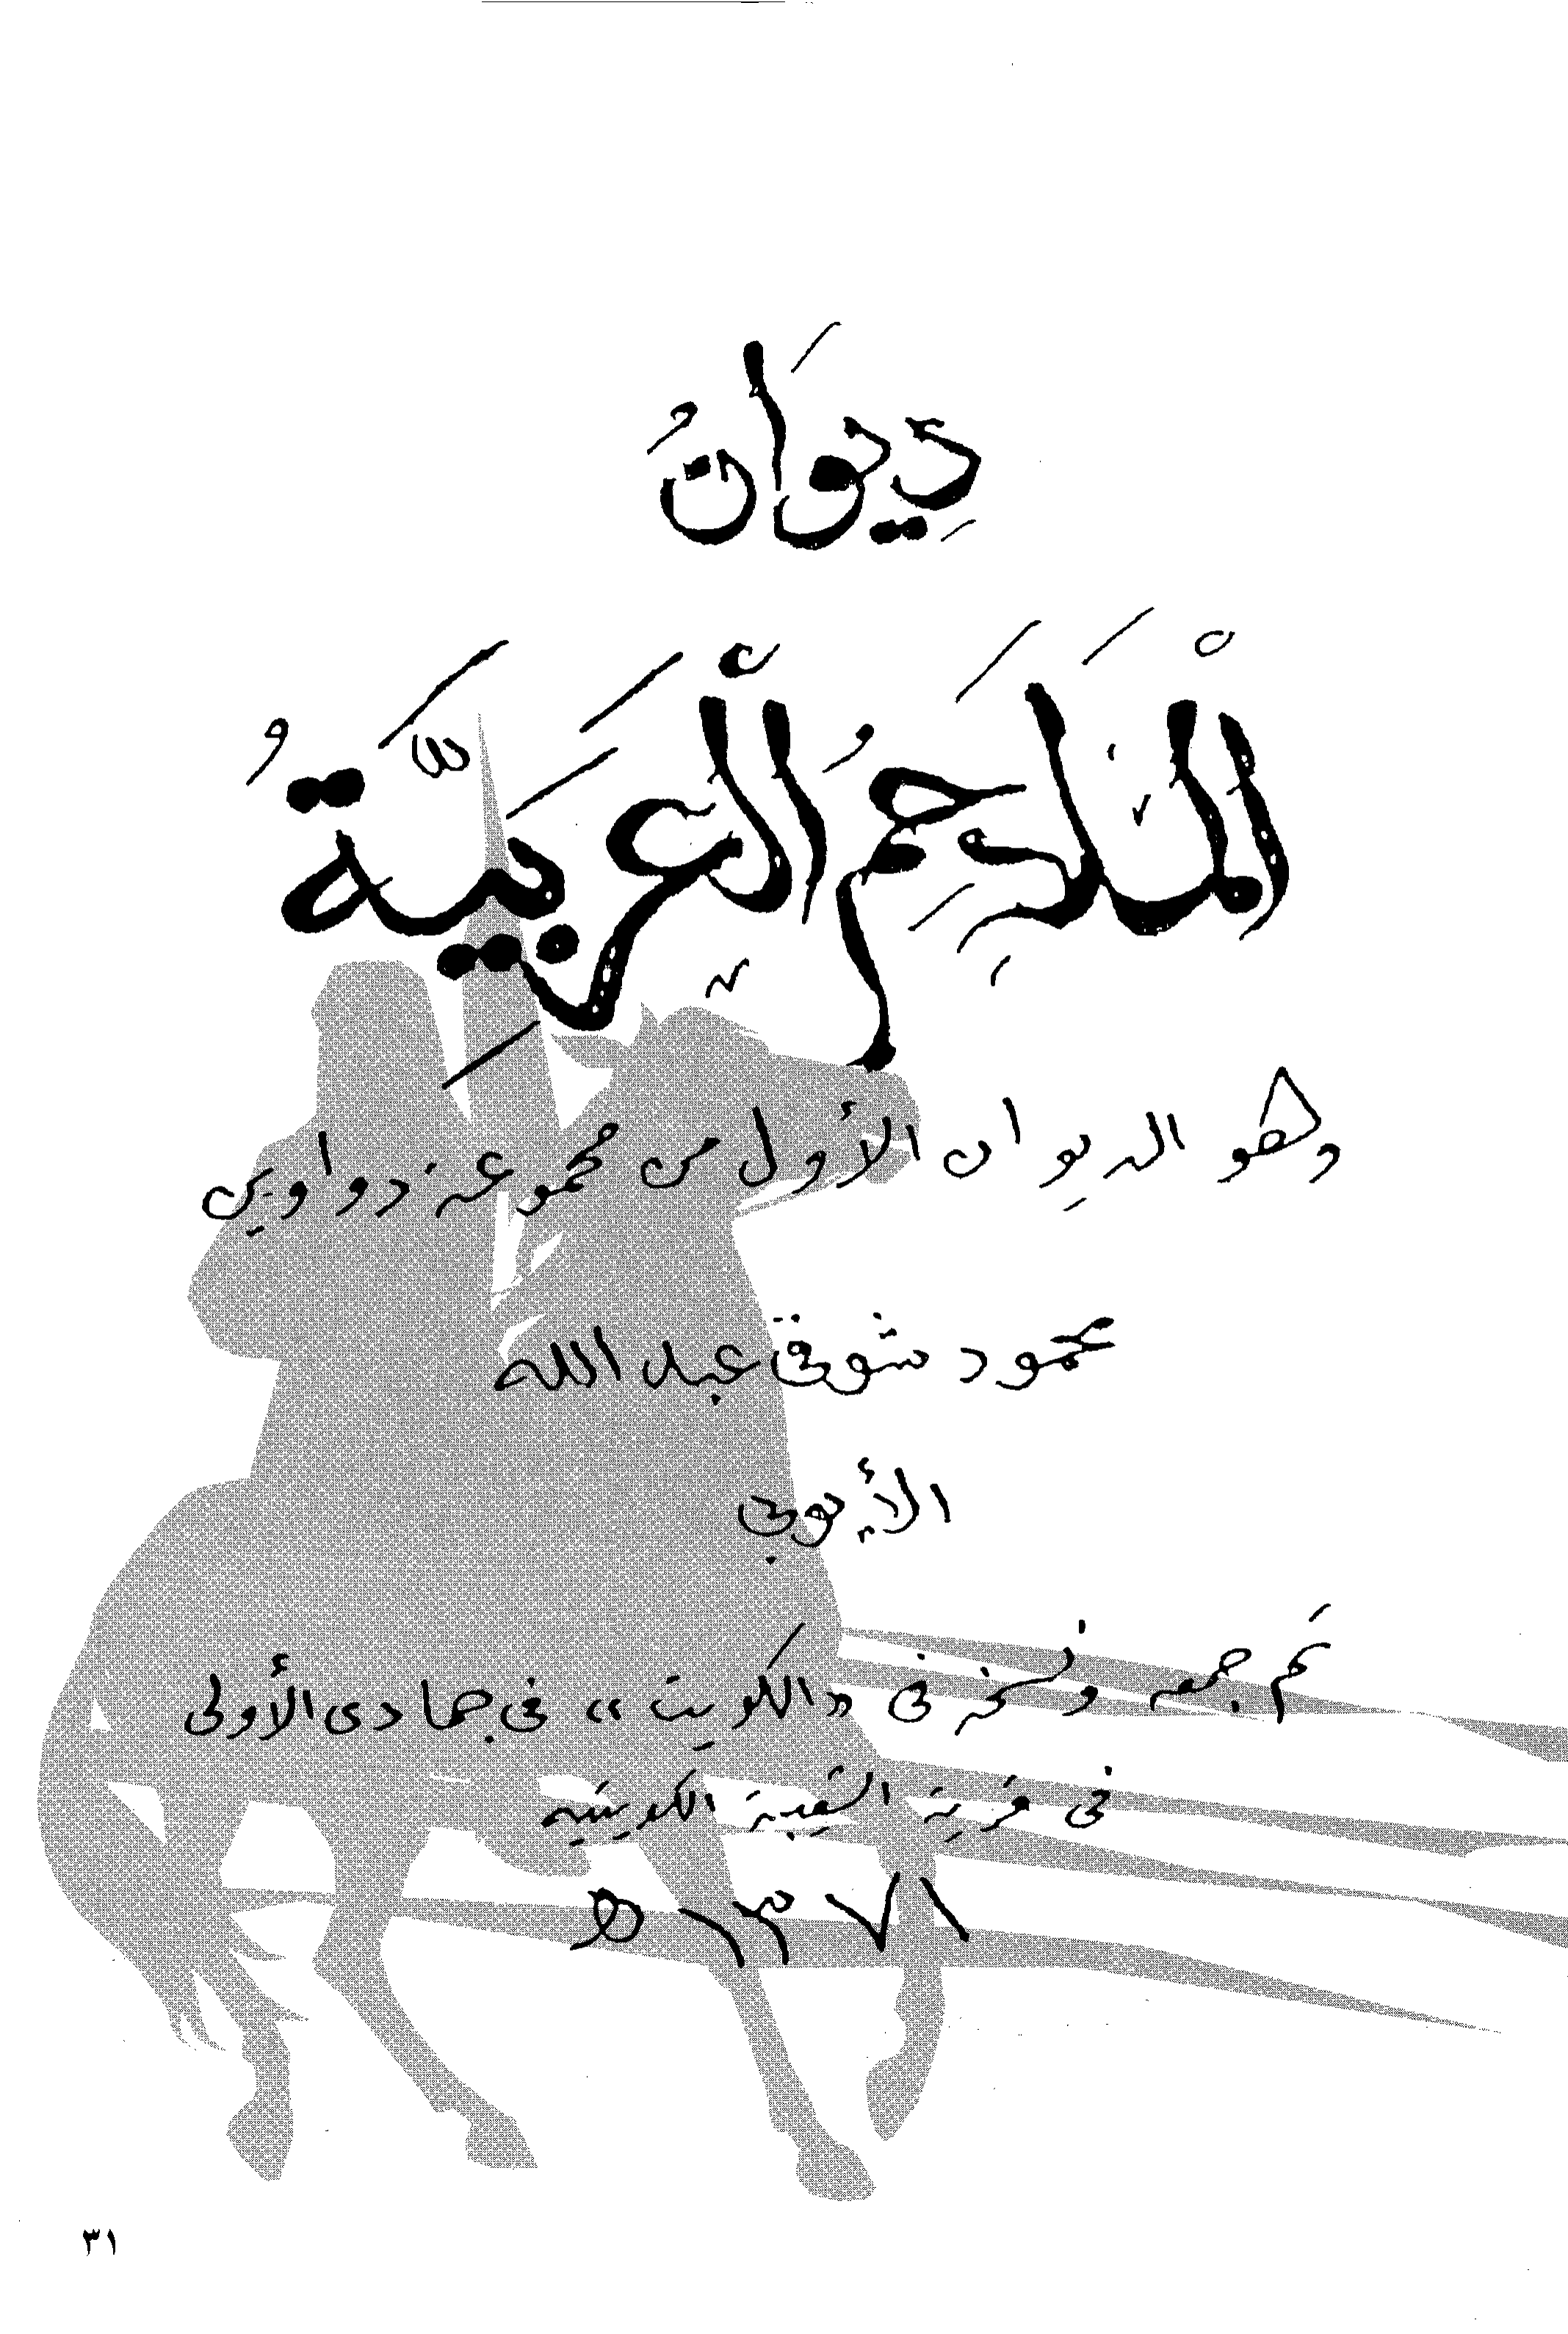 دِيوَانُ
الْمَلَاحِمُ الْعَرَبِيَّةُ
وهو الديوان الأول من مجموعة دواوين
محمود شوقي عبد الله
الأيوبي
تم جمعه ونسخه في «الكويت» في جمادى الأولى
في قرية الكويتيه
١٣٧١ هـ
٣١